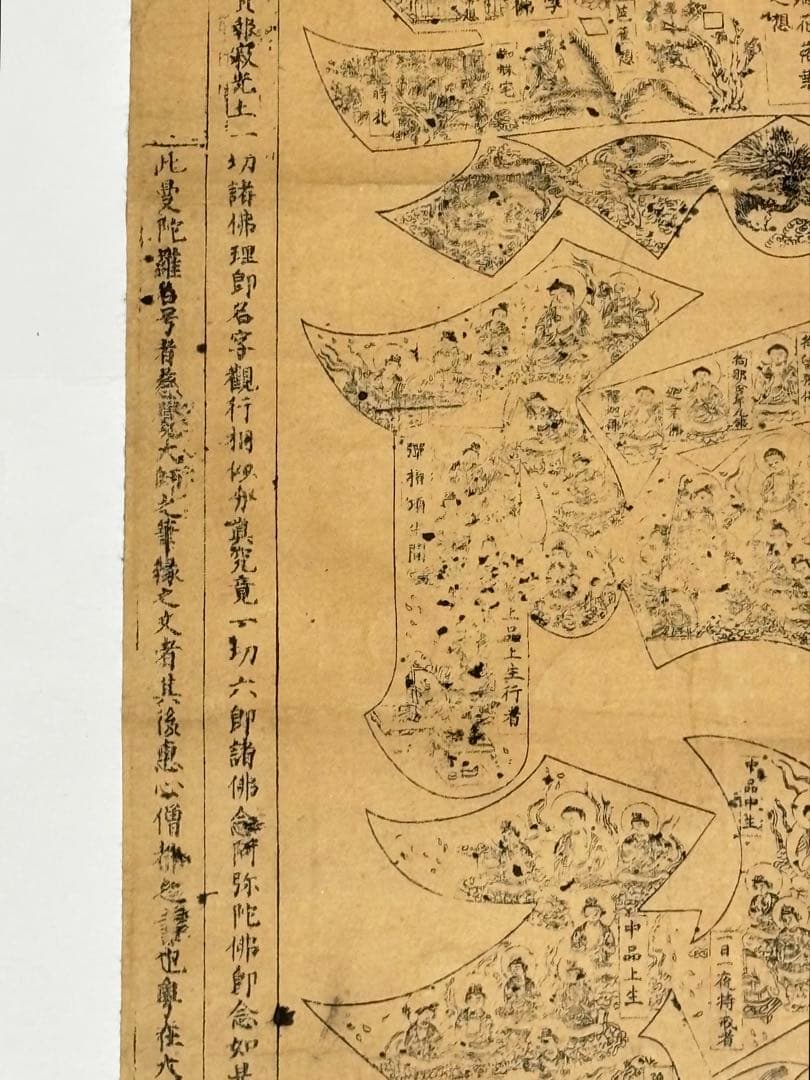 蜘蛛宅
芭蕉想
時乱
拘那含牟尼佛
迦葉佛
釋迦佛
彈指頃生
上品上生行者
中品中生
一日一夜持戒者
中品上生
報寂光土一切諸佛理即名字觀行相似分眞究竟一切六即諸佛念阿弥陀佛即念如是
此曼陀羅名号者慈覺大師之筆縁之文者其後惠心僧都之也